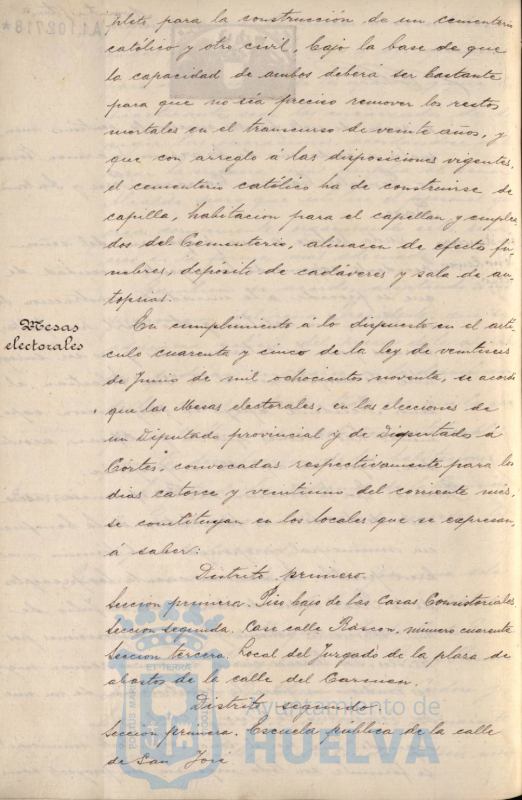 pleto para la construcción de un cementerio
católico y otro civil, bajo la base de que
la capacidad de ambos deberá ser bastante
para que no sea preciso remover los restos
mortales en el transcurso de veinte años, y
que con arreglo á las disposiciones vigentes,
el cementerio católico ha de construirse de
capilla, habitacion para el capellan y emplea-
dos del Cementerio, almacen de efectos fú-
nebres, depósito de cadáveres y sala de au-
topsias.
Mesas
electorales
En cumplimiento á lo dispuesto en el artí-
culo cuarenta y cinco de la ley de veintiseis
de Junio de mil ochocientos noventa, se acordó
que las Mesas electorales, en las elecciones de
un Diputado provincial y de Diputados á
Córtes, convocadas respectivamente para los
dias catorce y veintiuno del corriente mes,
se constituyan en los locales que se expresan,
á saber:
Distrito primero.
Seccion primera. Piso bajo de las Casas Consistoriales.
Seccion segunda. Casa calle Rascon, número cuarenta
Seccion tercera. Local del Juzgado de la plaza de
abastos de la calle del Carmen.
Distrito segundo.
Seccion primera. Escuela pública de la calle
de San José
A1.102718*
Ayuntamiento de
HUELVA
PORTUS MARIS
ET TERRAE
CUSTODIA